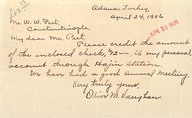 Adana, Turkey,
April 24, 1906
Mr. W. W. Peet
Constantinople
My dear Mr. Peet
Please credit the amount
of the enclosed check, to my personal
account through Hajin station.
We have had a good Annual Meeting.
Very truly yours,
Olive M. Vaughan